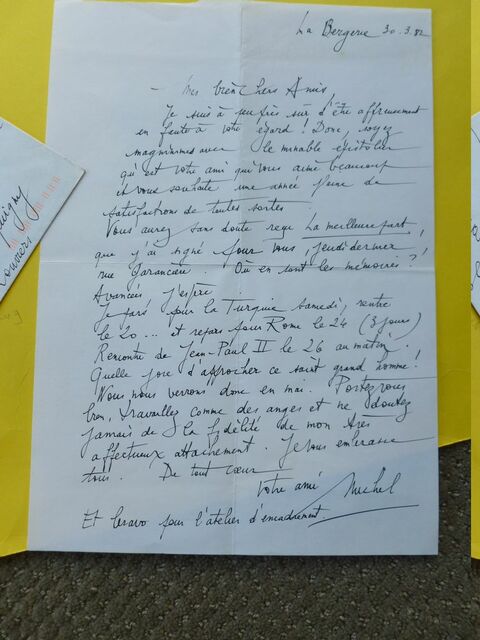 La Bergerie 30.3.82
- Mes bien chers Amis,
Je suis à peu près sûr d'être affreusement
en faute à votre égard ! Donc, soyez
magnanimes avec le minable épistolier
qu'est votre ami qui vous aime beaucoup
et vous souhaite une année pleine de
satisfactions de toutes sortes.
Vous aurez sans doute reçu La meilleure part,
que j'ai signé pour vous, jeudi dernier,
rue Garancière. Où en sont les mémoires ?
Avancées j'espère.
Je pars pour la Turquie samedi, rentre
le 20... et repars pour Rome le 24 (3 jours)
Rencontre de Jean-Paul II le 26 au matin.
Quelle joie d'approcher ce saint grand homme !
Nous nous verrons donc en mai. Portez vous
bien, travaillez comme des anges et ne doutez
jamais de la fidélité de mon très
affectueux attachement. Je vous embrasse
tous. De tout cœur
Votre ami Michel
Et bravo pour l'atelier d'encadrement.
Louviers